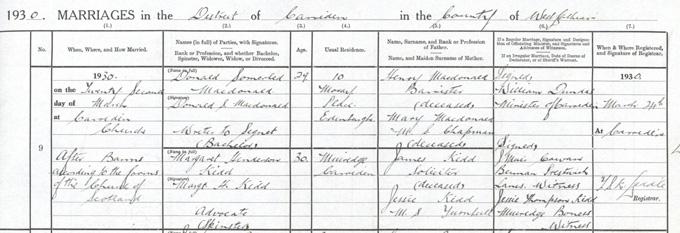 1930. MARRIAGES in the District of Carriden in the County of West Lothian
(1.) (2.) (3.) (4.) (5.) (6.) (7.)
No. When, Where, and How Married. Names (in full) of Parties, with Signatures. Rank or Profession, and whether Bachelor, Spinster, Widower, Widow, or Divorced. Age. Usual Residence. Name, Surname, and Rank or Profession of Father. Name, and Maiden Surname of Mother. If a Regular Marriage, Signature and Designation of Officiating Minister, and Signatures and Addresses of Witnesses. If an Irregular Marriage, Date of Decree of Declarator, or of Sheriff's Warrant. When & Where Registered, and Signature of Registrar.
9
1930.
on the Twenty Second
day of March
at Carriden
Church
After Banns
according to the forms
of the Church of
Scotland
(Name in full)
Donald Somerled
Macdonald
(Signature)
Donald S Macdonald
Writer to Signet
(Bachelor)
(Name in full)
Margaret Henderson
Kidd
(Signature)
Margt H. Kidd
Advocate
(Spinster)
29
30.
10
Moray
Place
Edinburgh
Muiredge
Carriden
Henry Macdonald
Barrister
(deceased)
Mary Macdonald
M.S. Chapman
(deceased)
James Kidd
Solicitor
(deceased)
Jessie Kidd
M.S. Turnbull
Signed
William Dundas
Minister of Carriden
Signed
J Muir Cowan
Lanes. Witness
Jessie Thompson Kidd
Muiredge Boness
Witness
1930.
March 24th
At Carriden
Registrar.